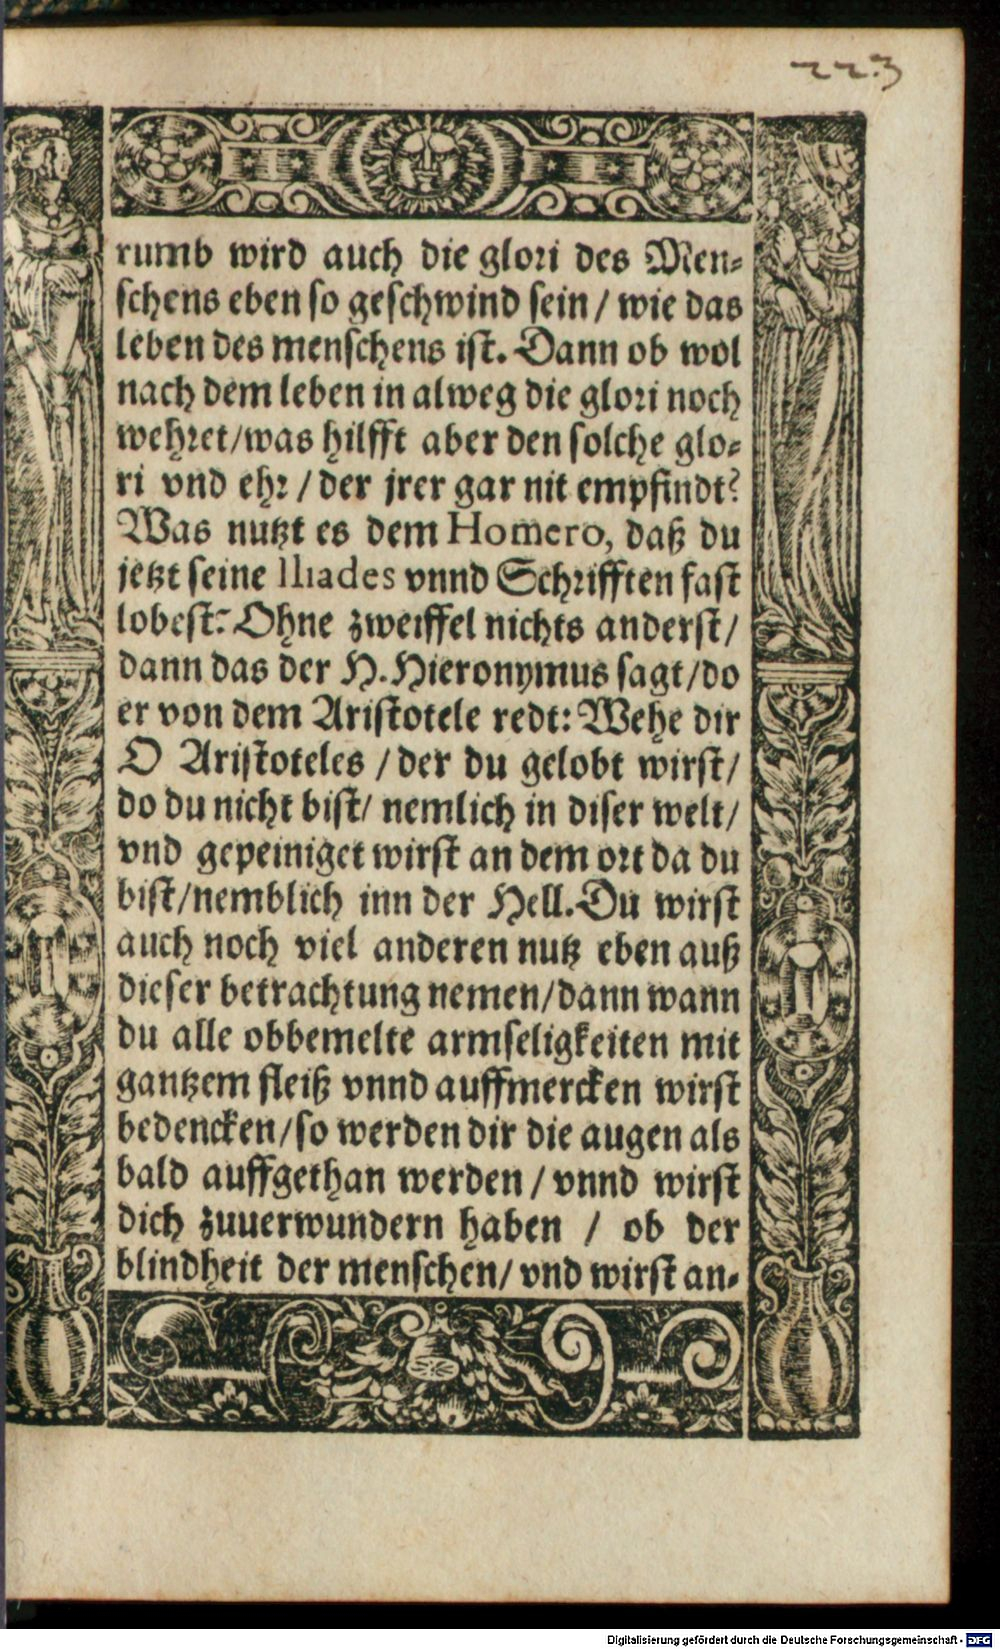 223
rumb wird auch die glori des Men-
schens eben so geschwind sein / wie das
leben des menschens ist. Dann ob wol
nach dem leben in alweg die glori noch
wehret/was hilfft aber den solche glo-
ri vnd ehr / der jrer gar nit empfindt?
Was nutzt es dem Homero, daß du
jetzt seine Iliades vnnd Schrifften fast
lobest? Ohne zweiffel nichts anderst/
dann das der H. Hieronymus sagt/do
er von dem Aristotele redt: Wehe dir
O Aristoteles / der du gelobt wirst/
do du nicht bist/ nemlich in diser welt/
vnd gepeiniget wirst an dem ort da du
bist/nemblich inn der Hell. Du wirst
auch noch viel anderen nutz eben auß
dieser betrachtung nemen/dann wann
du alle obbemelte armseligkeiten mit
gantzem fleiß vnnd auffmercken wirst
bedencken/so werden dir die augen als
bald auffgethan werden / vnnd wirst
dich zuuerwundern haben / ob der
blindheit der menschen/ vnd wirst an-
Digitalisierung gefördert durch die Deutsche Forschungsgemeinschaft - DFG